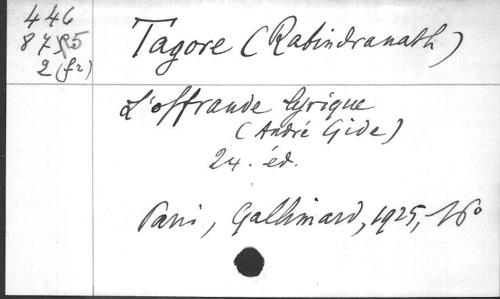 446
87
2 (f2)
Tagore (Rabindranath)
L'offrande lyrique
(André Gide)
24. éd.
Paris, Gallimard, 1925, 16º